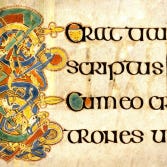 erat titu
scriptus
Et cum eo cr
trones u